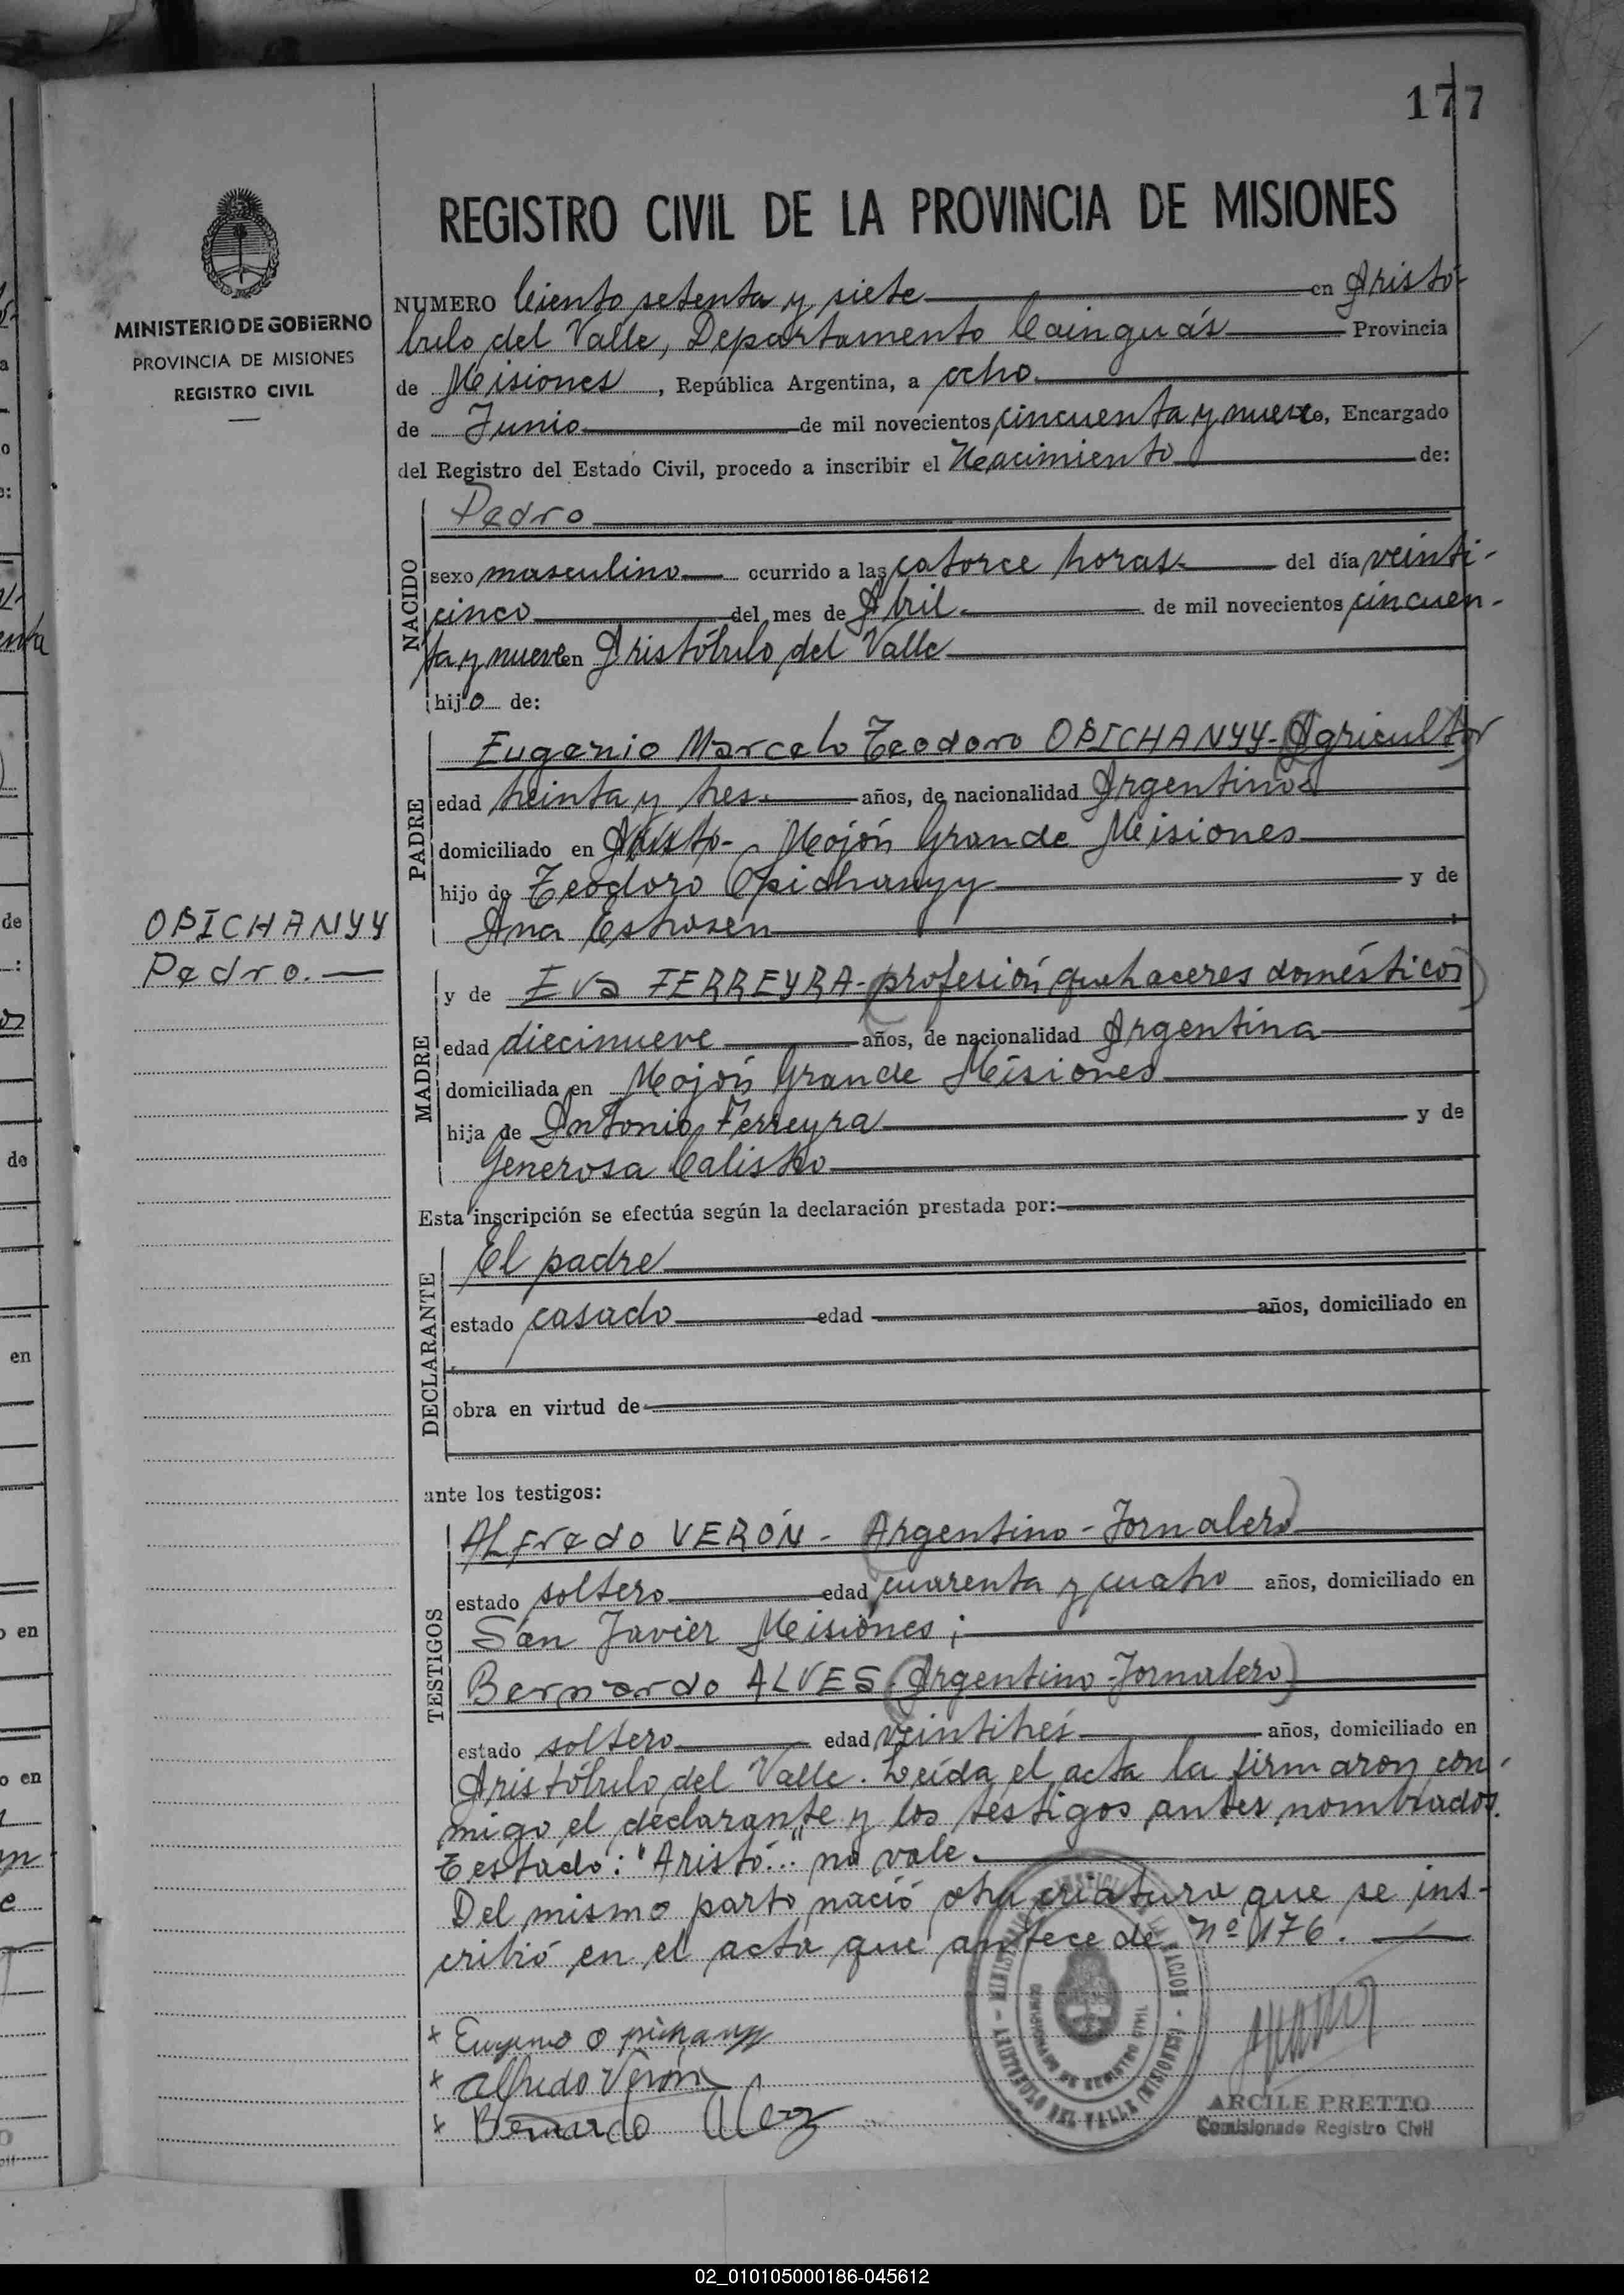 177
REGISTRO CIVIL DE LA PROVINCIA DE MISIONES
MINISTERIO DE GOBIERNO
PROVINCIA DE MISIONES
REGISTRO CIVIL
NUMERO Ciento setenta y siete en Aristó-
bulo del Valle, Departamento Cainguás Provincia
de Misiones, República Argentina, a ocho
de Junio de mil novecientos cincuenta y nueve, Encargado
del Registro del Estado Civil, procedo a inscribir el Nacimiento de:
NACIDO
Pedro
sexo masculino ocurrido a las catorce horas. del día veinti-
cinco del mes de Abril. de mil novecientos cincuen-
ta y nueve en Aristóbulo del Valle
hijo de:
PADRE
Eugenio Marcelo Teodoro OPICHANYY-(Agricultor)
edad treinta y tres. años, de nacionalidad Argentino
domiciliado en Aristo- Mojón Grande Misiones
hijo de Teodoro Opichanyy y de
Ana
OPICHANYY
Pedro.
MADRE
y de Eva FERREYRA-(profesión quehaceres domésticos)
edad diecinueve años, de nacionalidad Argentina
domiciliada en Mojón Grande Misiones
hija de Antonio Ferreyra y de
Generosa
Esta inscripción se efectúa según la declaración prestada por:
DECLARANTE
El padre
estado casado edad años, domiciliado en
obra en virtud de
ante los testigos:
TESTIGOS
Alfredo VERÓN - (Argentino - Jornalero)
estado soltero edad cuarenta y cuatro años, domiciliado en
San Javier Misiones;
Bernardo ALVES (Argentino-Jornalero)
estado soltero edad veintitrés años, domiciliado en
Aristóbulo del Valle. Leída el acta la firmaron con-
migo el declarante y los testigos antes nombrados.
Testado: "Aristó..." no vale.
Del mismo parto nació otra criatura que se ins-
cribió en el acta que antecede nº 176.
x Eugenio Opichanyy
x Alfredo Verón
x Bernardo Alvez
ARCILE PRETTO
Comisionado Registro Civil
02_010105000186-045612